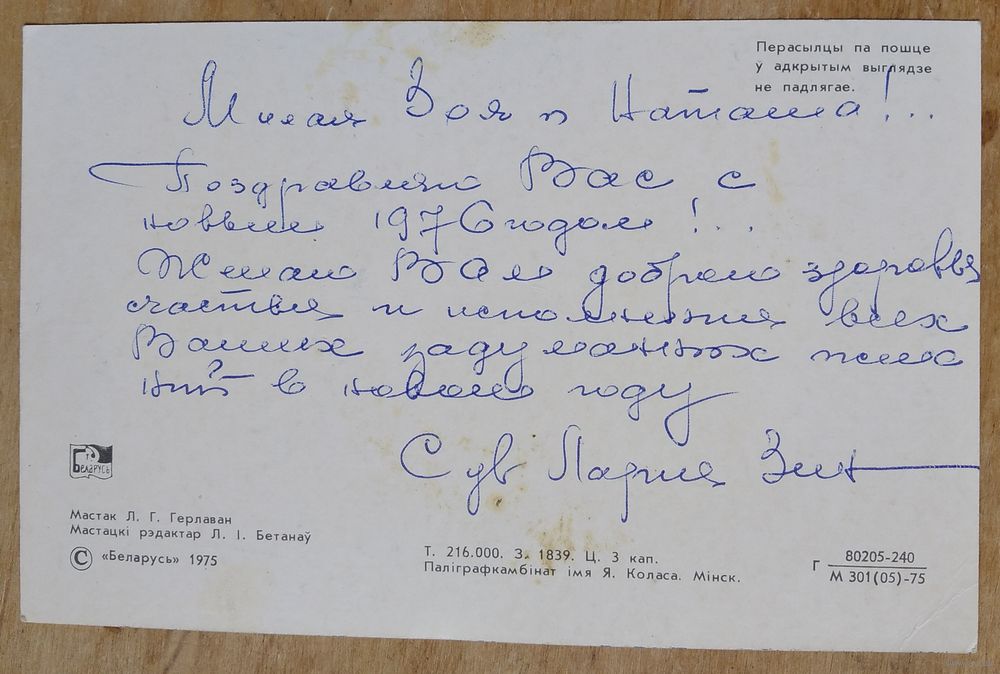 Перасылцы па пошце
ў адкрытым выглядзе
не падлягае.
Милая Зоя и Наташа!...
Поздравляю Вас с
новым 1976 годом!...
Желаю Вам доброго здоровья
счастья и исполнения всех
Ваших задуманных жела
ний в новом году
Сув Лария Зин
Беларусь
Мастак Л. Г. Герлаван
Мастацкі рэдактар Л. І. Бетанаў
© «Беларусь» 1975
Т. 216.000. З. 1839. Ц. 3 кап.
Паліграфкамбінат імя Я. Коласа. Мінск.
Г 80205-240
М 301(05)-75